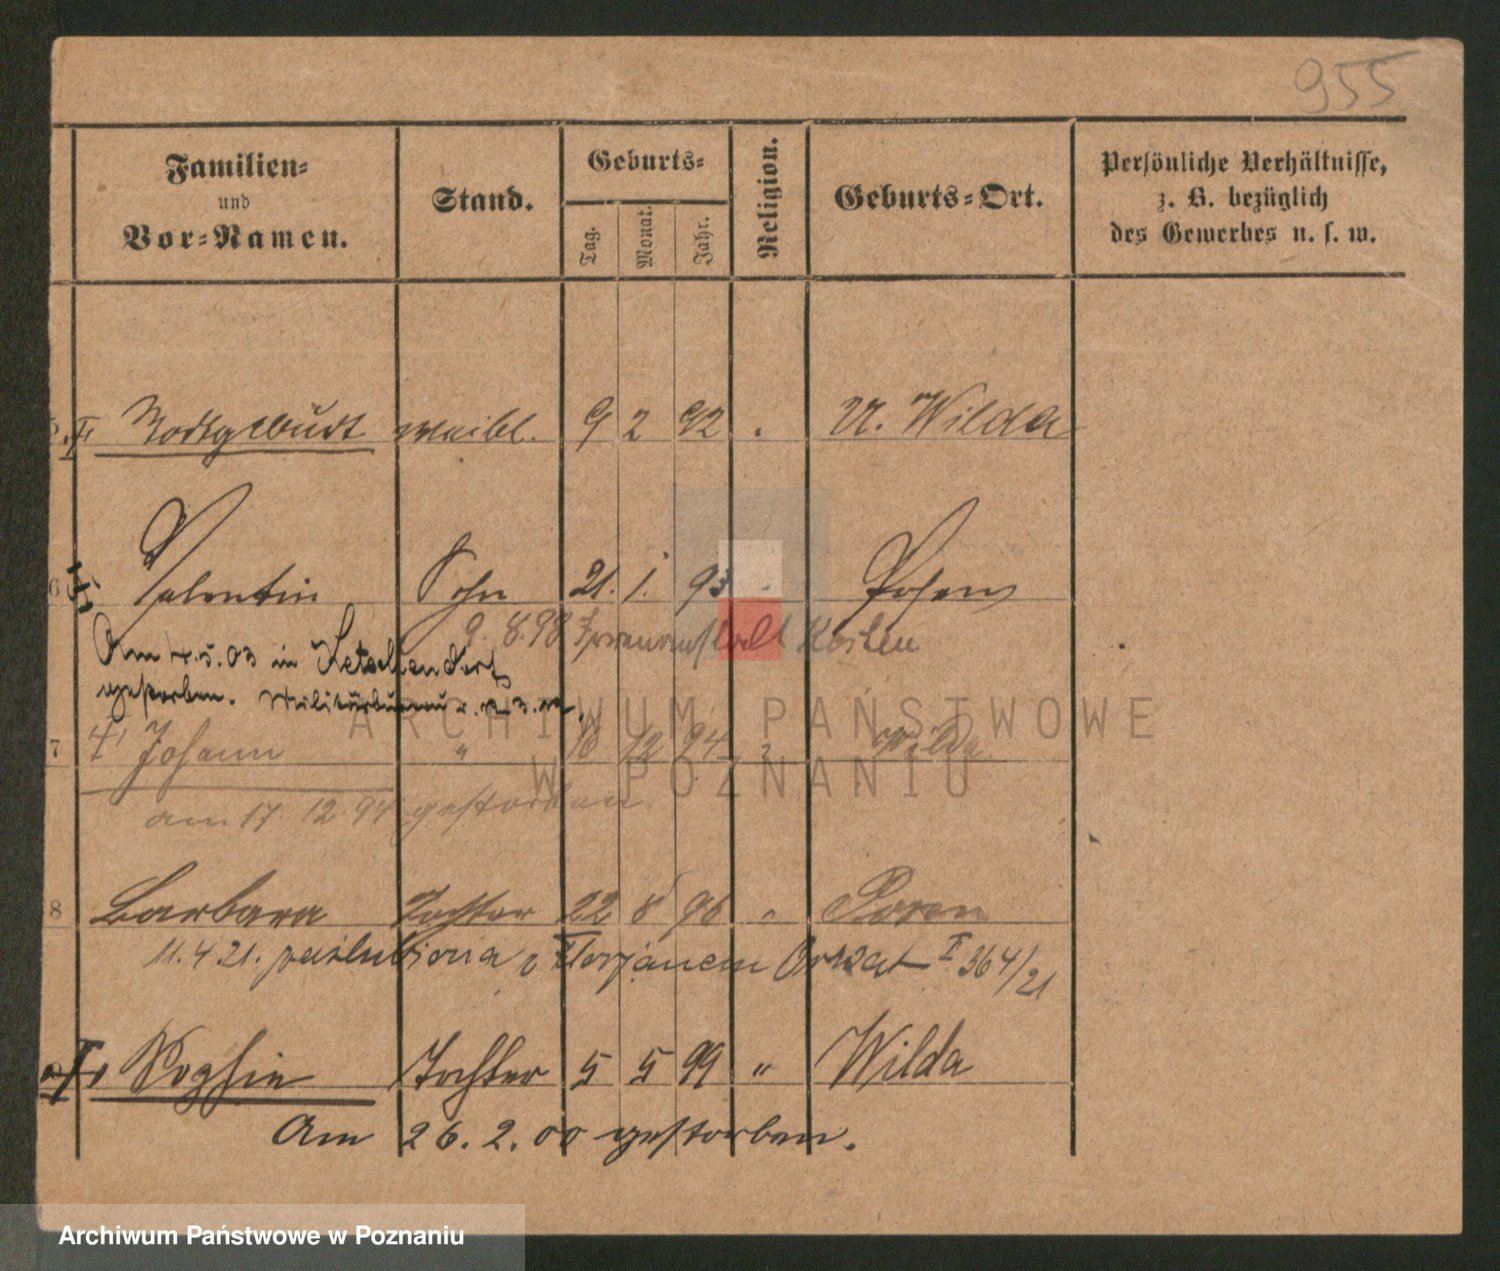 955
Familien-
und
Vor-Namen.
Stand.
Geburts-
Tag.
Monat.
Jahr.
Religion.
Geburts-Ort.
Persönliche Verhältnisse,
z. B. bezüglich
des Gewerbes u. s. w.
5. † Todtgeburt weibl. 9 2 92 . U. Wilda
6 † Valentin Sohn 21. 1. 93 . Posen
9. 8. 98 Irrenanstalt Kosten
Am 4.5.03 in
gestorben.
7 † Johann " 10 12 94 " Wilda
am 17. 12. 94 gestorben
8 Barbara Tochter 22 8 96 " Posen
11. 4 21. poślubiona z Florjanem I 364/21
9 † Sophie Tochter 5 5 99 " Wilda
Am 26. 2. 00 gestorben.
ARCHIWUM PAŃSTWOWE
W POZNANIU
Archiwum Państwowe w Poznaniu